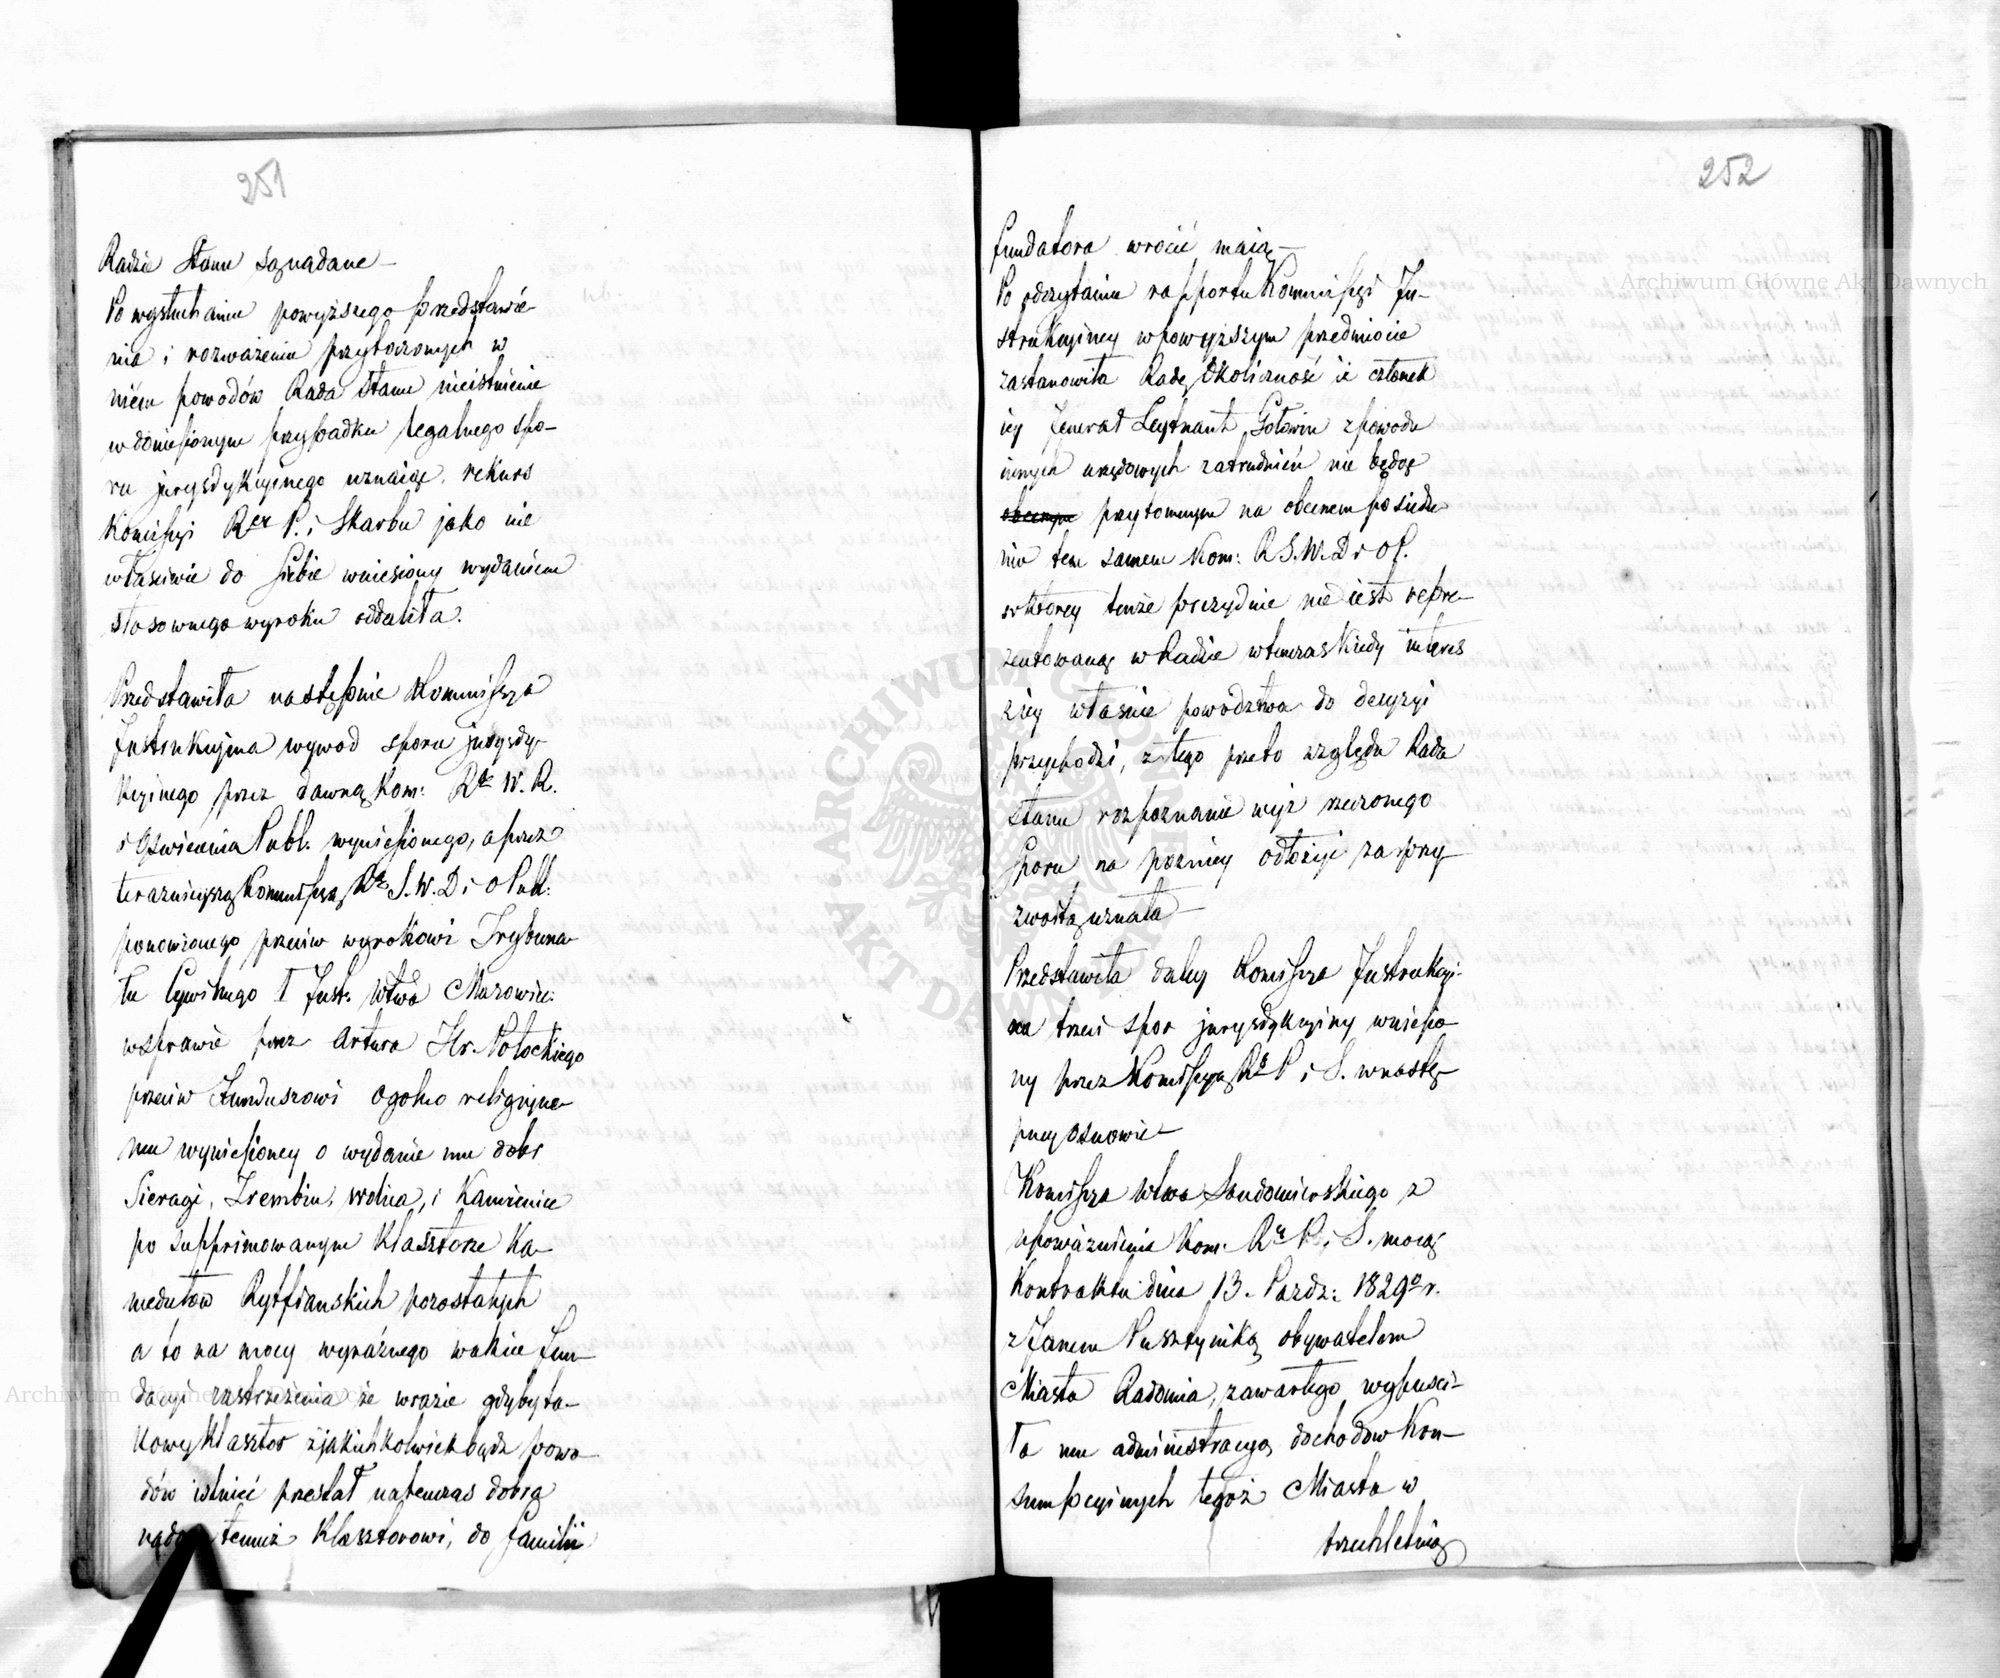 251
Radzie Stanu są nadane —
Po wysłuchaniu powyższego przedstawie-
nia i rozważeniu przytoczonych w
niém powodów Rada Stanu nieistnienie
w doniesionym przypadku legalnego spo-
ru jurysdykcyinego uznaiąc, rekurs
Komissyi Rz P. i Skarbu jako nie
właściwie do siebie wniesiony wydaniem
stosownego wyroku oddaliła.
Przedstawiła następnie Kommissya
Instrukcyina wywod sporu jurysdy-
kcyinego przez dawną Kom: Rz W. R.
i Oświecenia Publ. wyniesionego, a przez
teraznieyszą Kommissyą Rz S. W. D i O Publ.
ponowionego przeciw wyrokowi Trybuna-
łu Cywilnego I Inst: Wtwa Mazowiec:
w sprawie przez Artura Hr. Potockiego
przeciw Funduszowi ogolno religijne-
mu wyniesioney o wydanie mu dobr
Sieragi, Trembin, Wolica, i Kamienice
po supprimowanym Klasztorze Ka-
medułow Rytfianskich pozostałych
a to na mocy wyraźnego w akcie fun-
dacyi zastrzeżenia że w razie gdyby ta-
kowy Klasztor z jakichkolwiek bądz powo-
dów istnieć przestał natenczas dobra
temuż Klasztorowi, do familii
252
fundatora wrocić maią —
Po odczytaniu rapportu Kommissyi In-
strukcyiney w powyższym przedmiocie
zastanowiła Radę okoliczność iż członek
iey Jenerał Leytnant Gołowin z powodu
innych urzędowych zatrudnień nie będąc
obecnym przytomnym na obecnem posiedze
niu tem samem Kom: R S. W. D i O P.
w ktorey tenże prezyduie nie iest repre-
zentowaną w Radzie wtenczas kiedy interes
z iey własnie powodztwa do decyzyi
przychodzi, z tego przeto względu Rada
Stanu rozpoznanie wyż rzeczonego
sporu na pozniey odłożyć za przy-
zwoitą uznała —
Przedstawiła daley Komissya Instrukcyi-
na trzeci spor jurysdykcyiny wniesio-
ny przez Komissyą Rz P i S. w nastę-
pney osnowie —
Komissya Wtwa Sandomierskiego z
upoważnienia Kom: Rz P. i S. mocą
Kontraktu dnia 13. Pazdz: 1829o r.
z Janem Pusztynika obywatelem
Miasta Radomia, zawartego wypuści-
ła mu administracyą dochodow kon-
sumpcyinych tegoż Miasta w
trzechletnią
Archiwum Główne Akt Dawnych
Archiwum Główne Akt Dawnych
ARCHIWUM GŁÓWNE AKT DAWNYCH